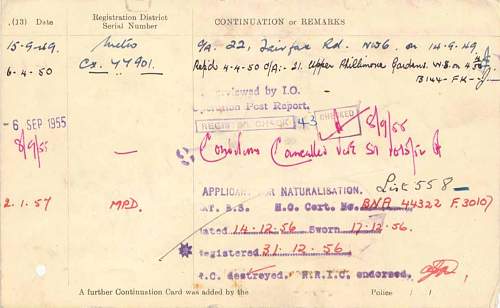 (13) Date Registration District Serial Number CONTINUATION or REMARKS
15-9-49. Metro C/A. 22, Fairfax Rd. NW6. on 14-9-49
6-4-50 Cx. 77901. Rep'd 4-4-50 C/A:- 21. Upper Phillimore Gardens. W.8. on
B144-FK-
viewed by I.O.
Post Report.
REGISTR CHECK 43 CHECKED
- 6 SEP 1955
8/9/55 8/9/55
— Conditions Cancelled
APPLICANT FOR NATURALISATION. List 558 -
2.1.57 MPD. H.O. Cert. No. BNA 44322 F.30107
ated 14.12.56 Sworn 17.12.56.
Registered 31.12.56
R.C. destroyed. R.R.I.C. endorsed,
A further Continuation Card was added by the Police